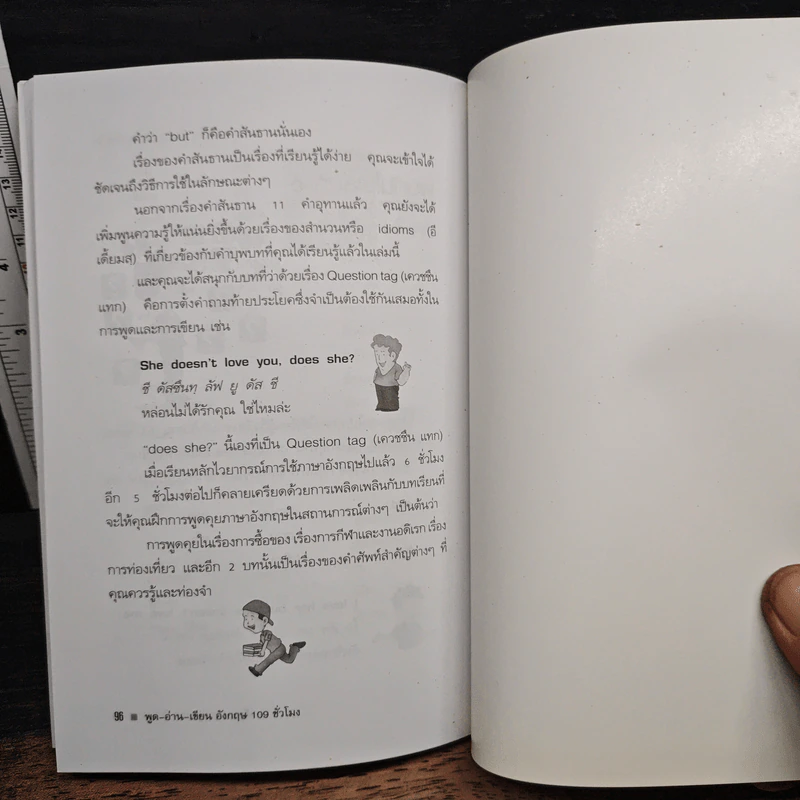 คำว่า "but" ก็คือคำสันธานนั่นเอง
เรื่องของคำสันธานเป็นเรื่องที่เรียนรู้ได้ง่าย คุณจะเข้าใจได้
ชัดเจนถึงวิธีการใช้ในลักษณะต่างๆ
นอกจากเรื่องคำสันธาน 11 คำอุทานแล้ว คุณยังจะได้
เพิ่มพูนความรู้ให้แน่นยิ่งขึ้นด้วยเรื่องของสำนวนหรือ idioms (อี
เดี้ยมส) ที่เกี่ยวข้องกับคำบุพบทที่คุณได้เรียนรู้แล้วในเล่มนี้
และคุณจะได้สนุกกับบทที่ว่าด้วยเรื่อง Question tag (เควชชึ่น
แทก) คือการตั้งคำถามท้ายประโยคซึ่งจำเป็นต้องใช้กันเสมอทั้งใน
การพูดและการเขียน เช่น
She doesn't love you, does she?
ชี ดัสซึนทฺ ลัฟ ยู ดัส ชี
หล่อนไม่ได้รักคุณ ใช่ไหมล่ะ
"does she?" นี้เองที่เป็น Question tag (เควชชึ่น แทก)
เมื่อเรียนหลักไวยากรณ์การใช้ภาษาอังกฤษไปแล้ว 6 ชั่วโมง
อีก 5 ชั่วโมงต่อไปก็คลายเครียดด้วยการเพลิดเพลินกับบทเรียนที่
จะให้คุณฝึกการพูดคุยภาษาอังกฤษในสถานการณ์ต่างๆ เป็นต้นว่า
การพูดคุยในเรื่องการซื้อของ เรื่องการกีฬาและงานอดิเรก เรื่อง
การท่องเที่ยว และอีก 2 บทนั้นเป็นเรื่องของคำศัพท์สำคัญต่างๆ ที่
คุณควรรู้และท่องจำ
96 ■ พูด-อ่าน-เขียน อังกฤษ 109 ชั่วโมง
12
11
4
3